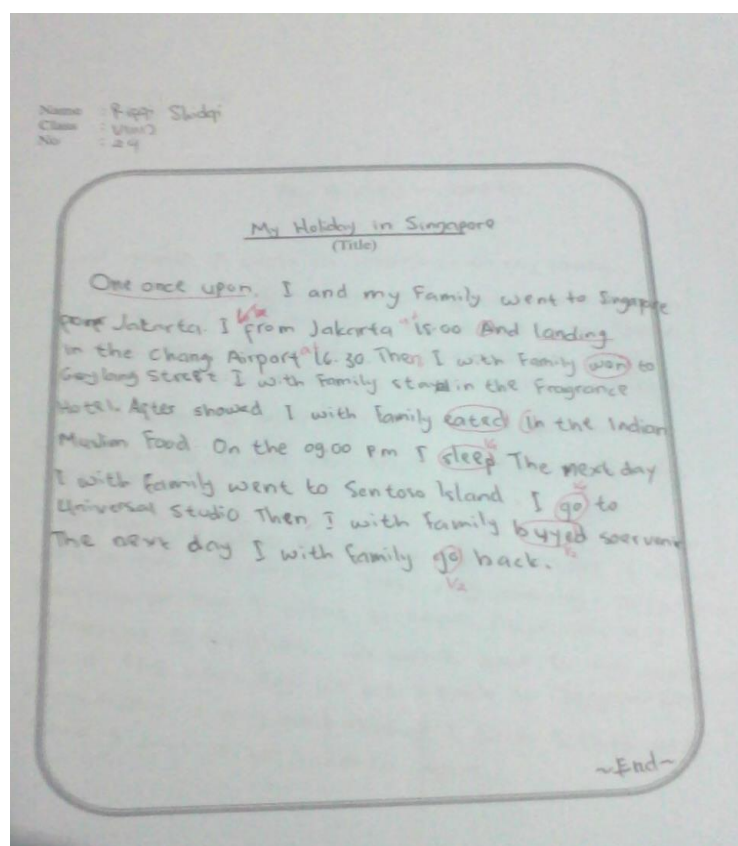 Name : Rippi Shidqi
Class : VIII2
No : 29
My Holiday in Singapore
(Title)
One once upon, I and my Family went to Singapore
from Jakarta. I from Jakarta 15.00 And landing
in the Chang Airport 16.30. Then I with Family wen to
Geylang Street I with Family stay in the Fragrance
Hotel. After showed I with family eated in the Indian
Muslim Food. On the 09.00 pm I sleep The next day
I with family went to Sentosa Island. I go to
Universal Studio Then I with family buyed
The next day I with family go back.
~End~